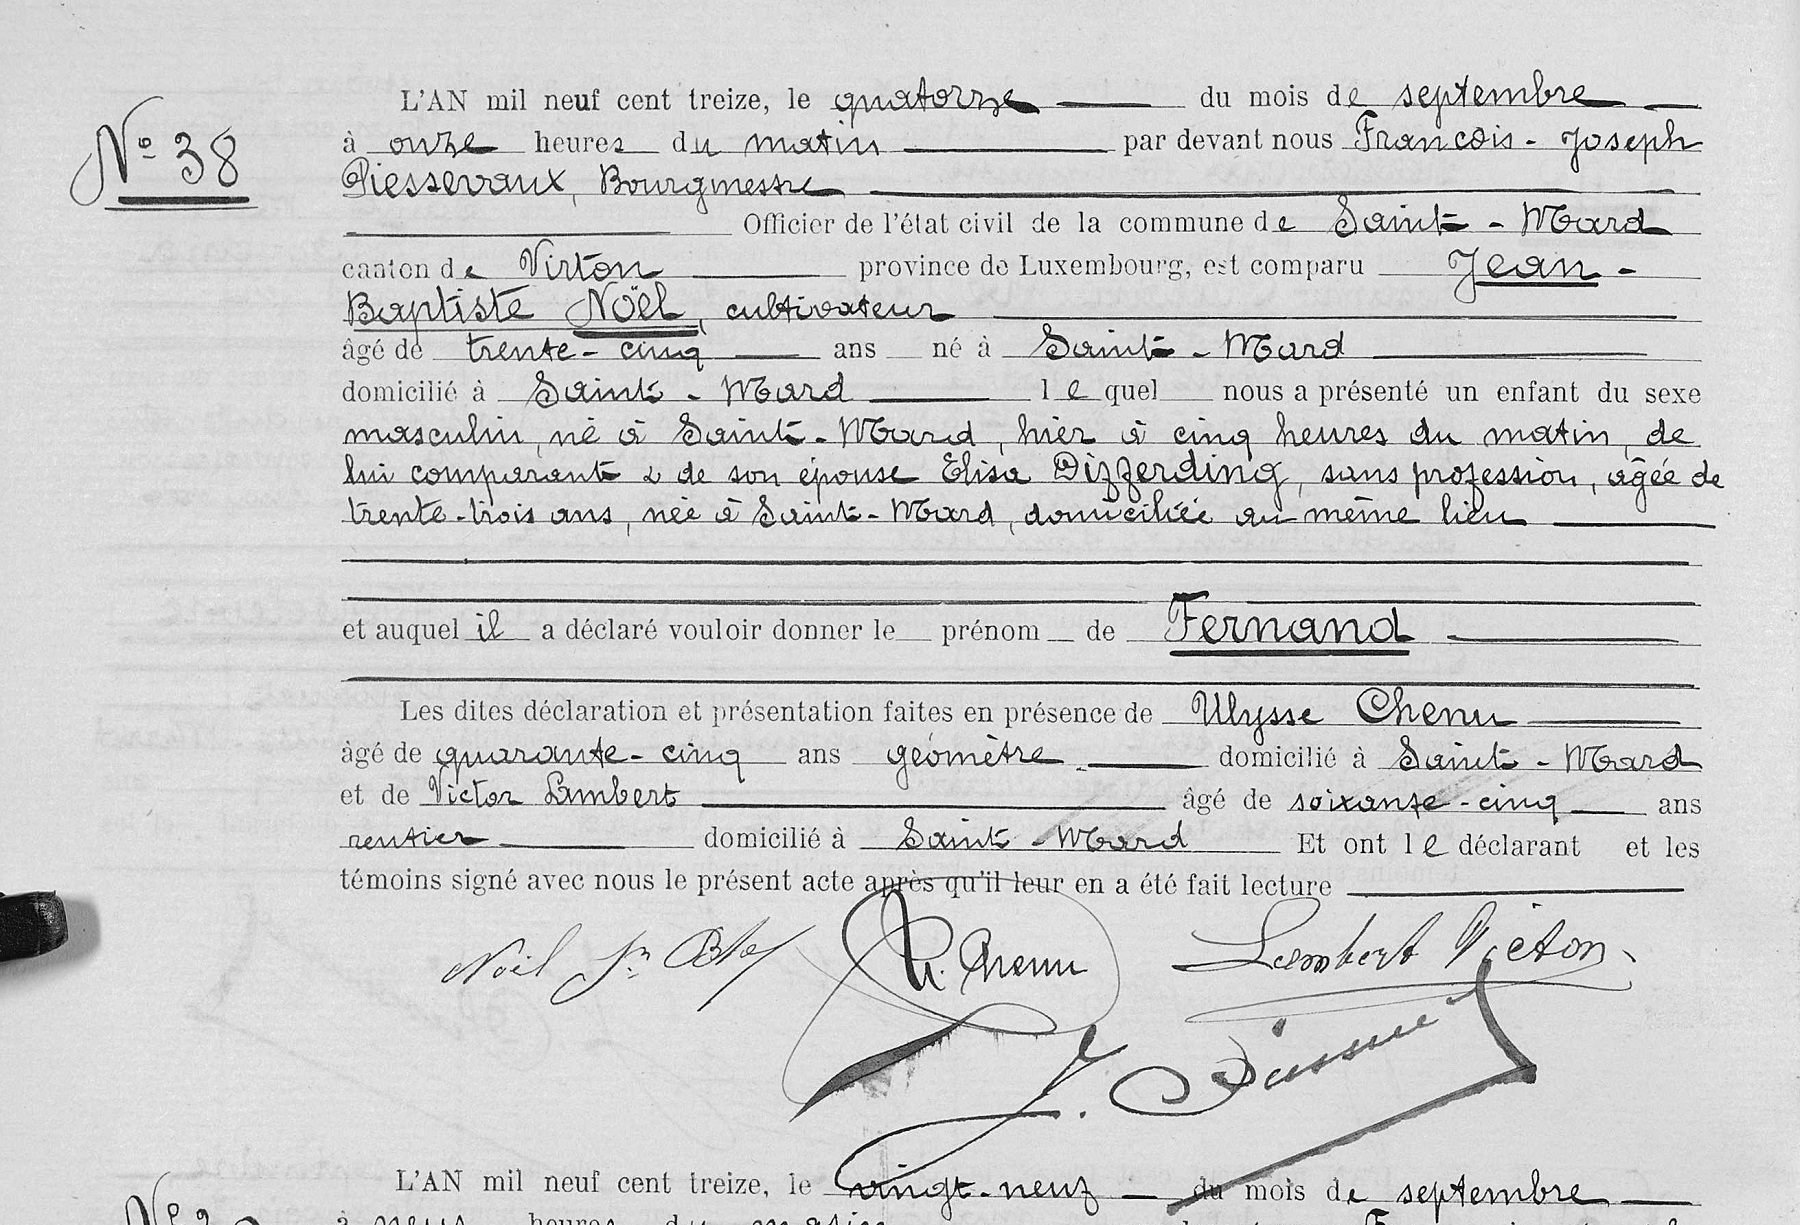 L'AN mil neuf cent treize, le quatorze du mois de septembre
N° 38
à onze heures du matin par devant nous François-Joseph
Piessevaux, Bourgmestre
Officier de l'état civil de la commune de Saint-Mard
canton de Virton province de Luxembourg, est comparu Jean-
Baptiste Noël, cultivateur
âgé de trente-cinq ans né à Saint-Mard
domicilié à Saint-Mard lequel nous a présenté un enfant du sexe
masculin, né à Saint-Mard, hier à cinq heures du matin, de
lui comparant & de son épouse Elisa Differding, sans profession, âgée de
trente-trois ans, née à Saint-Mard, domiciliée au même lieu
et auquel il a déclaré vouloir donner le prénom de Fernand
Les dites déclaration et présentation faites en présence de Ulysse Chenu
âgé de quarante-cinq ans géomètre domicilié à Saint-Mard
et de Victor Lambert âgé de soixante-cinq ans
rentier domicilié à Saint-Mard Et ont le déclarant et les
témoins signé avec nous le présent acte après qu'il leur en a été fait lecture
Noël Jn Bte U. Chenu Lambert Victor
L'AN mil neuf cent treize, le vingt-neuf du mois de septembre
à neuf heures du matin